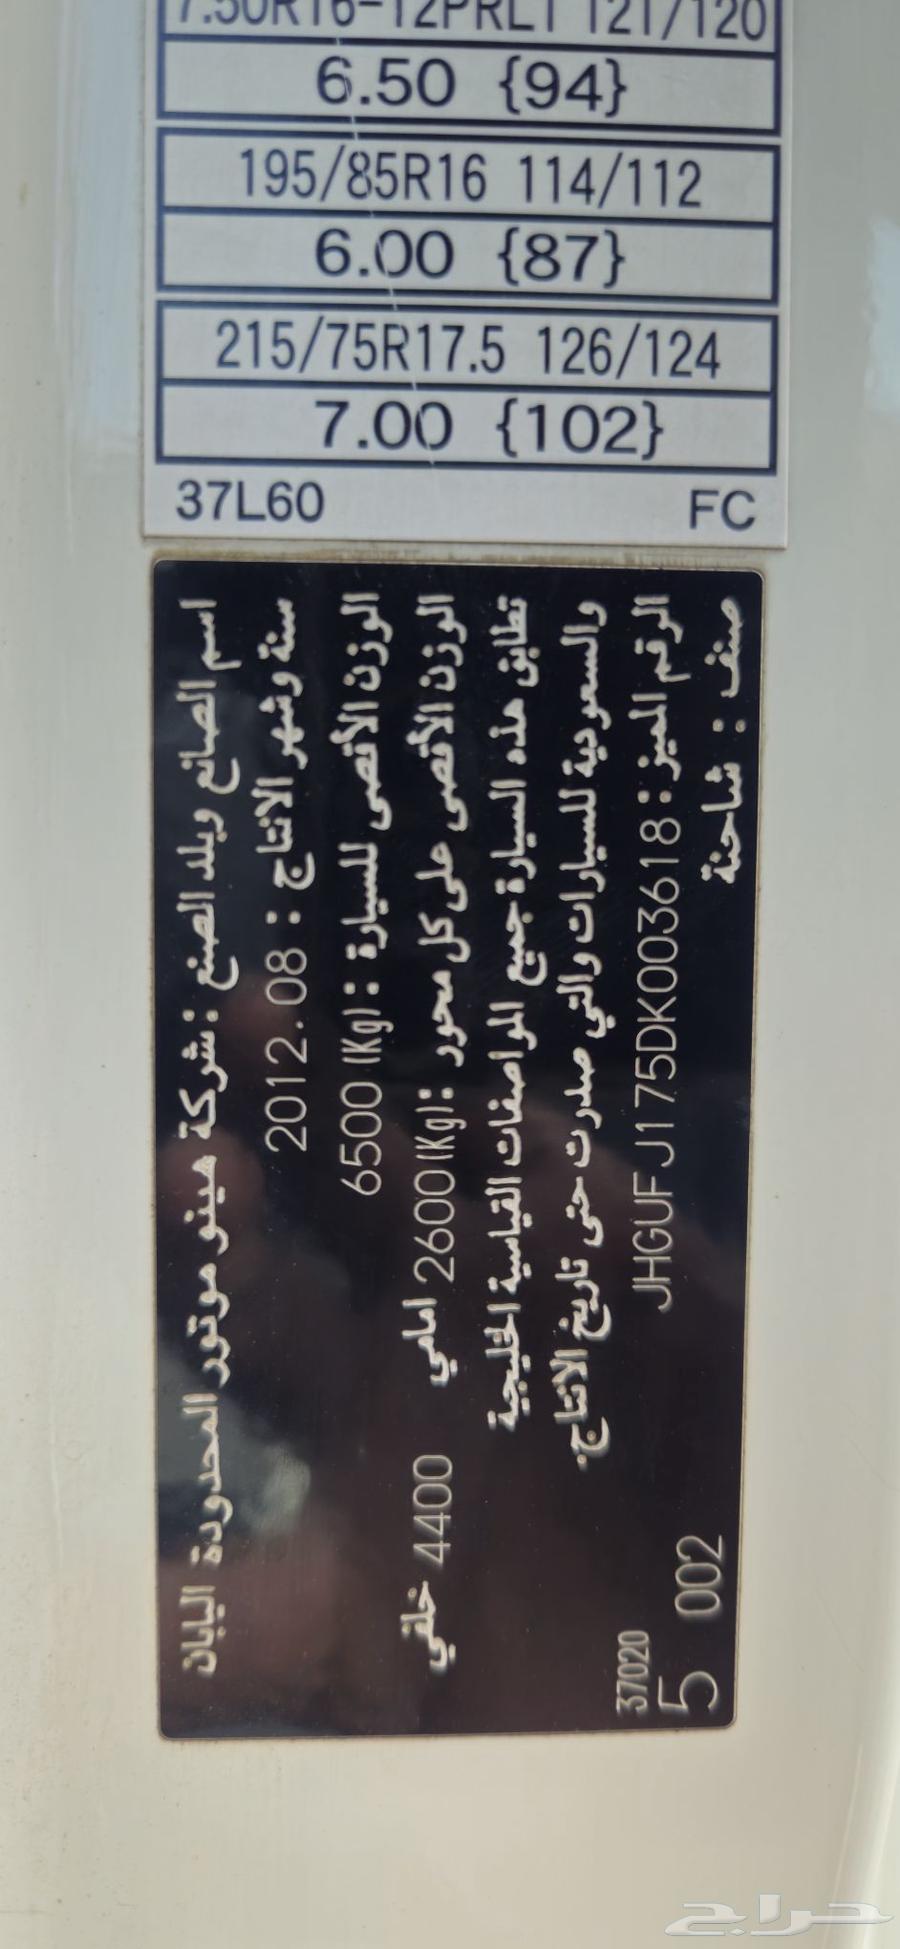 7.50R16-12PRLT 121/120
6.50 {94}
195/85R16 114/112
6.00 {87}
215/75R17.5 126/124
7.00 {102}
37L60 FC
اسم الصانع وبلد الصنع : شركة هينو موتور المحدودة اليابان
سنة وشهر الانتاج : 2012.08
الوزن الأقصى للسيارة : (Kg) 6500
الوزن الأقصى على كل محور : (Kg) 2600 امامي 4400 خلفي
تطابق هذه السيارة جميع المواصفات القياسية الخليجية
والسعودية للسيارات والتي صدرت حتى تاريخ الانتاج.
الرقم المميز : JHGUFJ175DK003618
صنف : شاحنة
37020
5 002
حراج